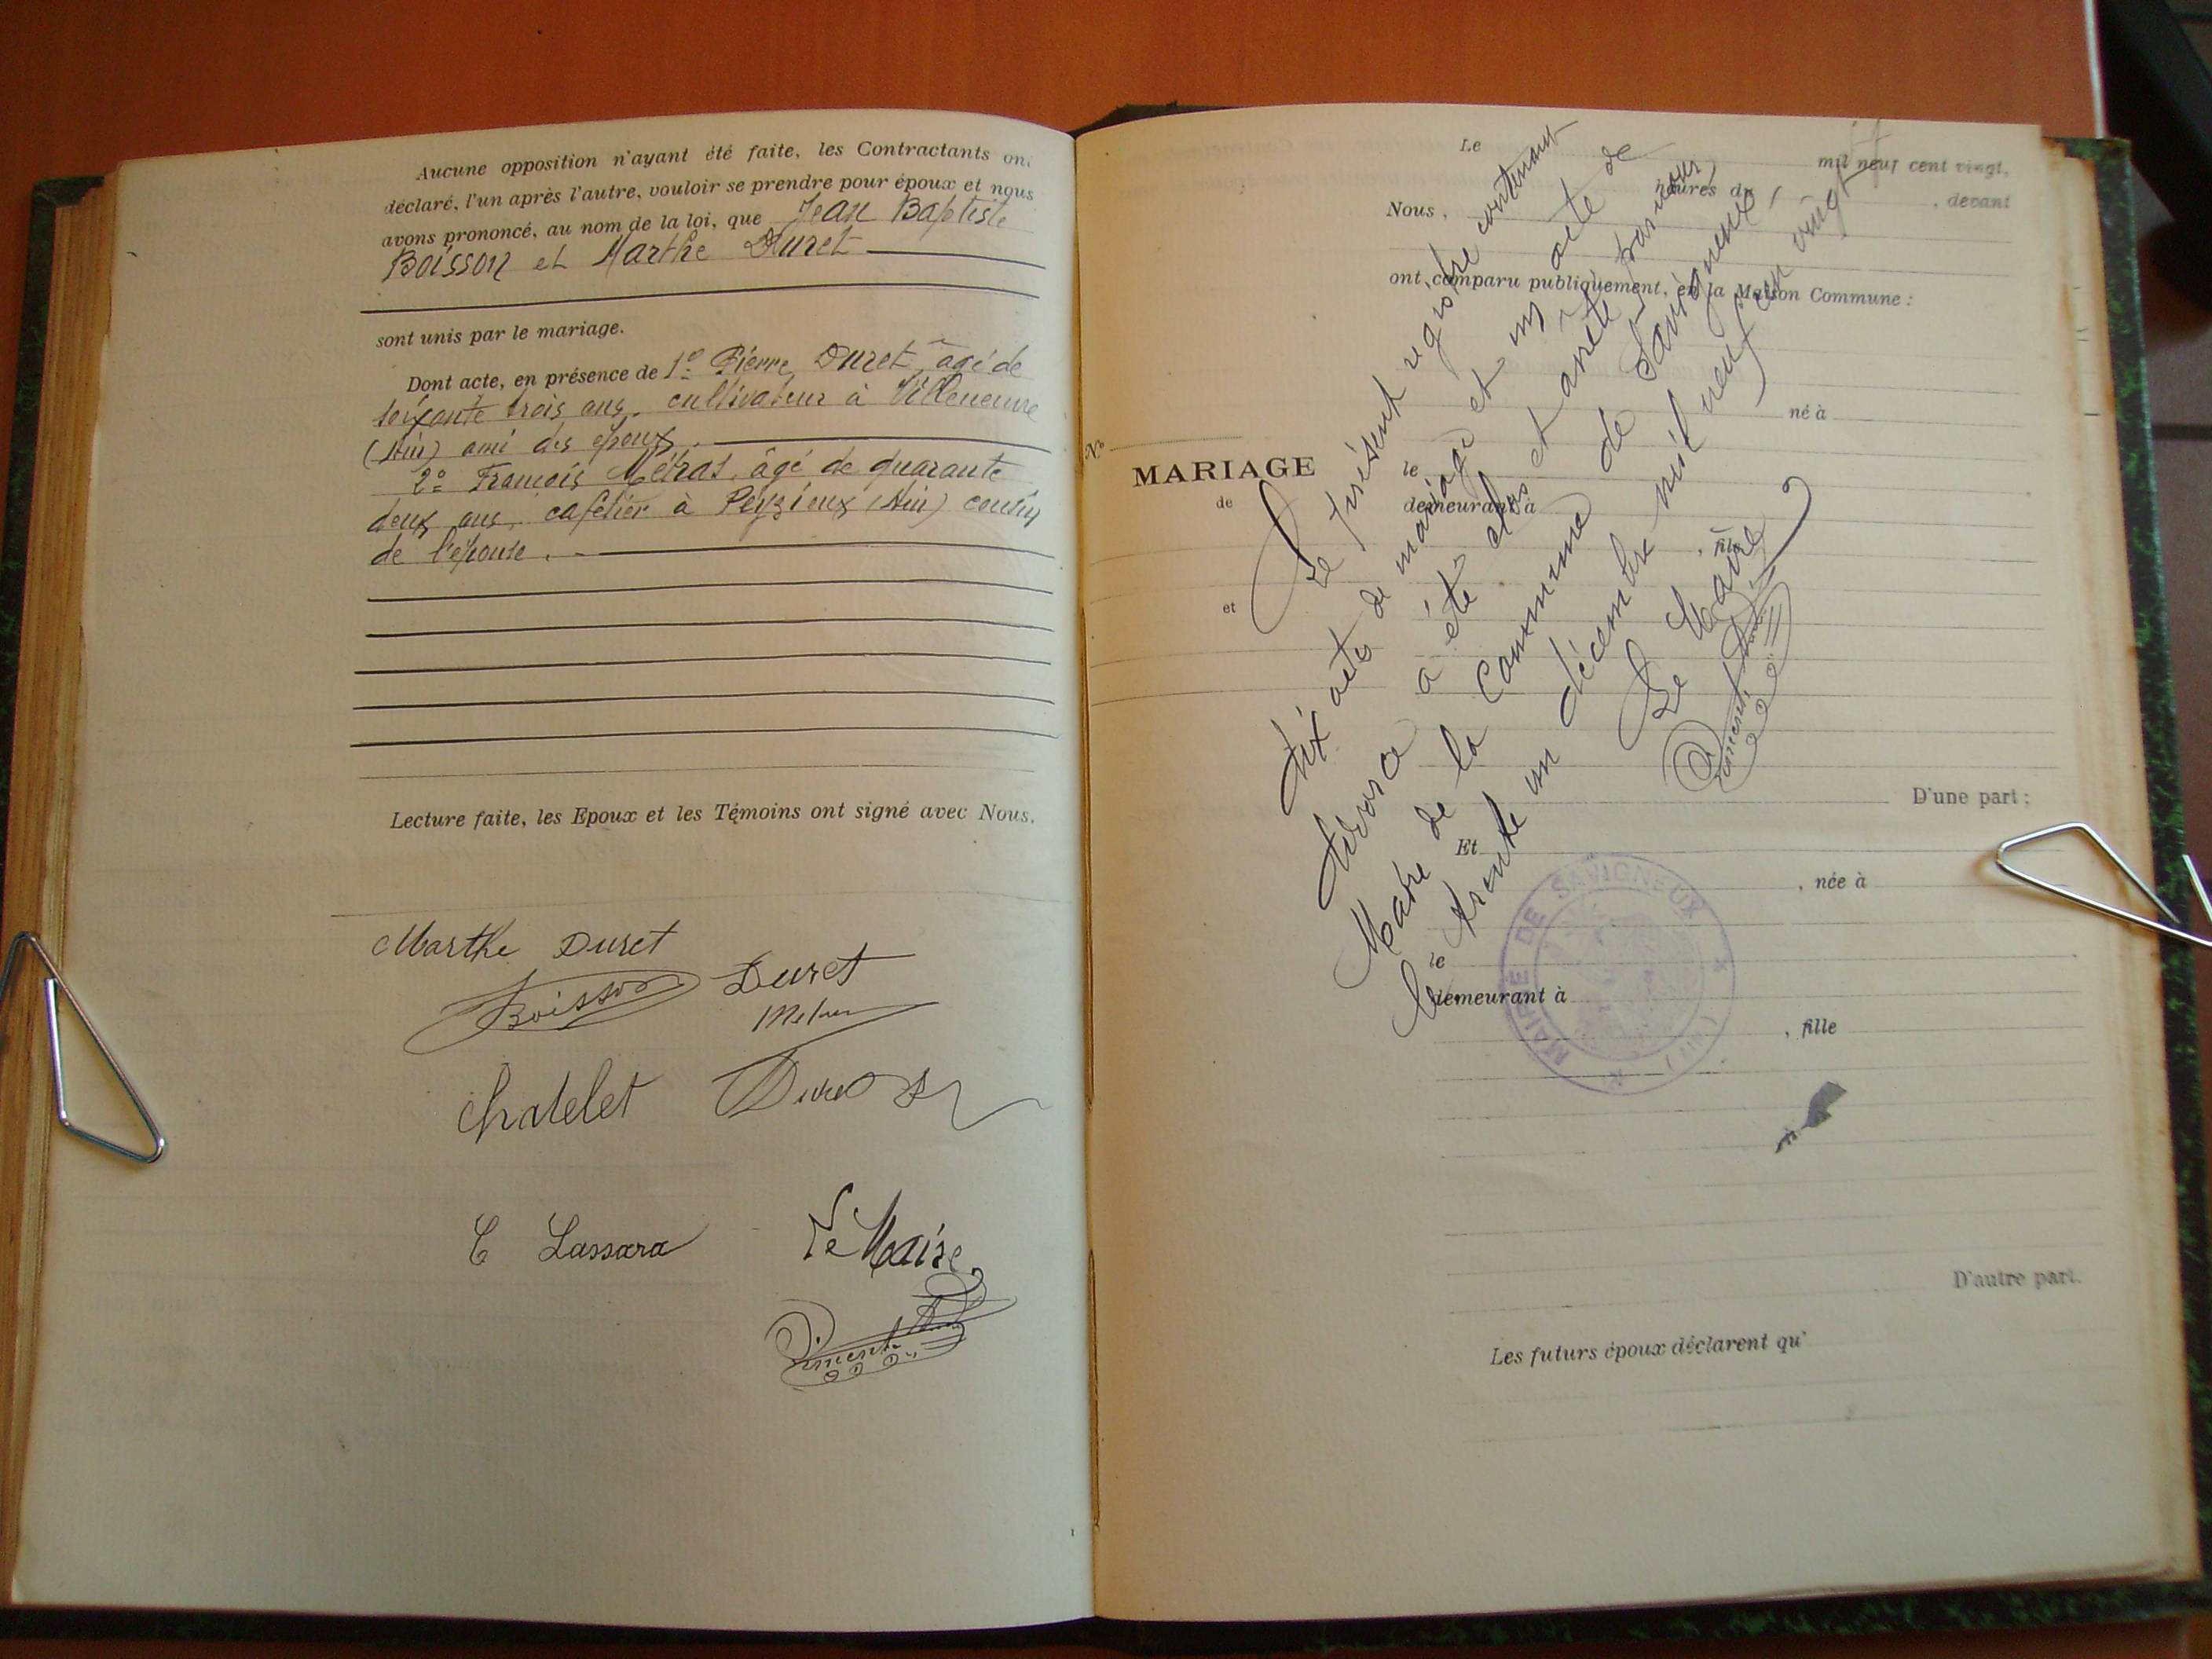 Aucune opposition n'ayant été faite, les Contractants on
déclaré, l'un après l'autre, vouloir se prendre pour époux et nous
avons prononcé, au nom de la loi, que Jean Baptiste
Boisson et Marthe Duret
sont unis par le mariage.
Dont acte, en présence de 1º Pierre Duret, âgé de
soixante trois ans, cultivateur à Villeneuve
(Ain) ami des époux.
2º François Métras, âgé de quarante
deux ans, cafetier à Peyzieux (Ain) cousin
de l'épouse.
Lecture faite, les Epoux et les Témoins ont signé avec Nous.
Marthe Duret
Boisson Duret
Chatelet
Lassara
Le Maire
Le mil neuf cent vingt,
heures du , devant
Nous,
ont comparu publiquement, en la Maison Commune :
né à
Nº
MARIAGE
de
et
le
demeurant à
, fils
D'une part ;
Et
, née à
le
demeurant à
, fille
D'autre part.
Les futurs époux déclarent qu'
Le présent registre contenant
dix actes de mariage et un acte de
divorce a été clos et arrêté par nous,
Maire de la commune de Savigneux,
le trente un décembre mil neuf cent vingt
Le Maire
MAIRIE DE SAVIGNEUX
(AIN)